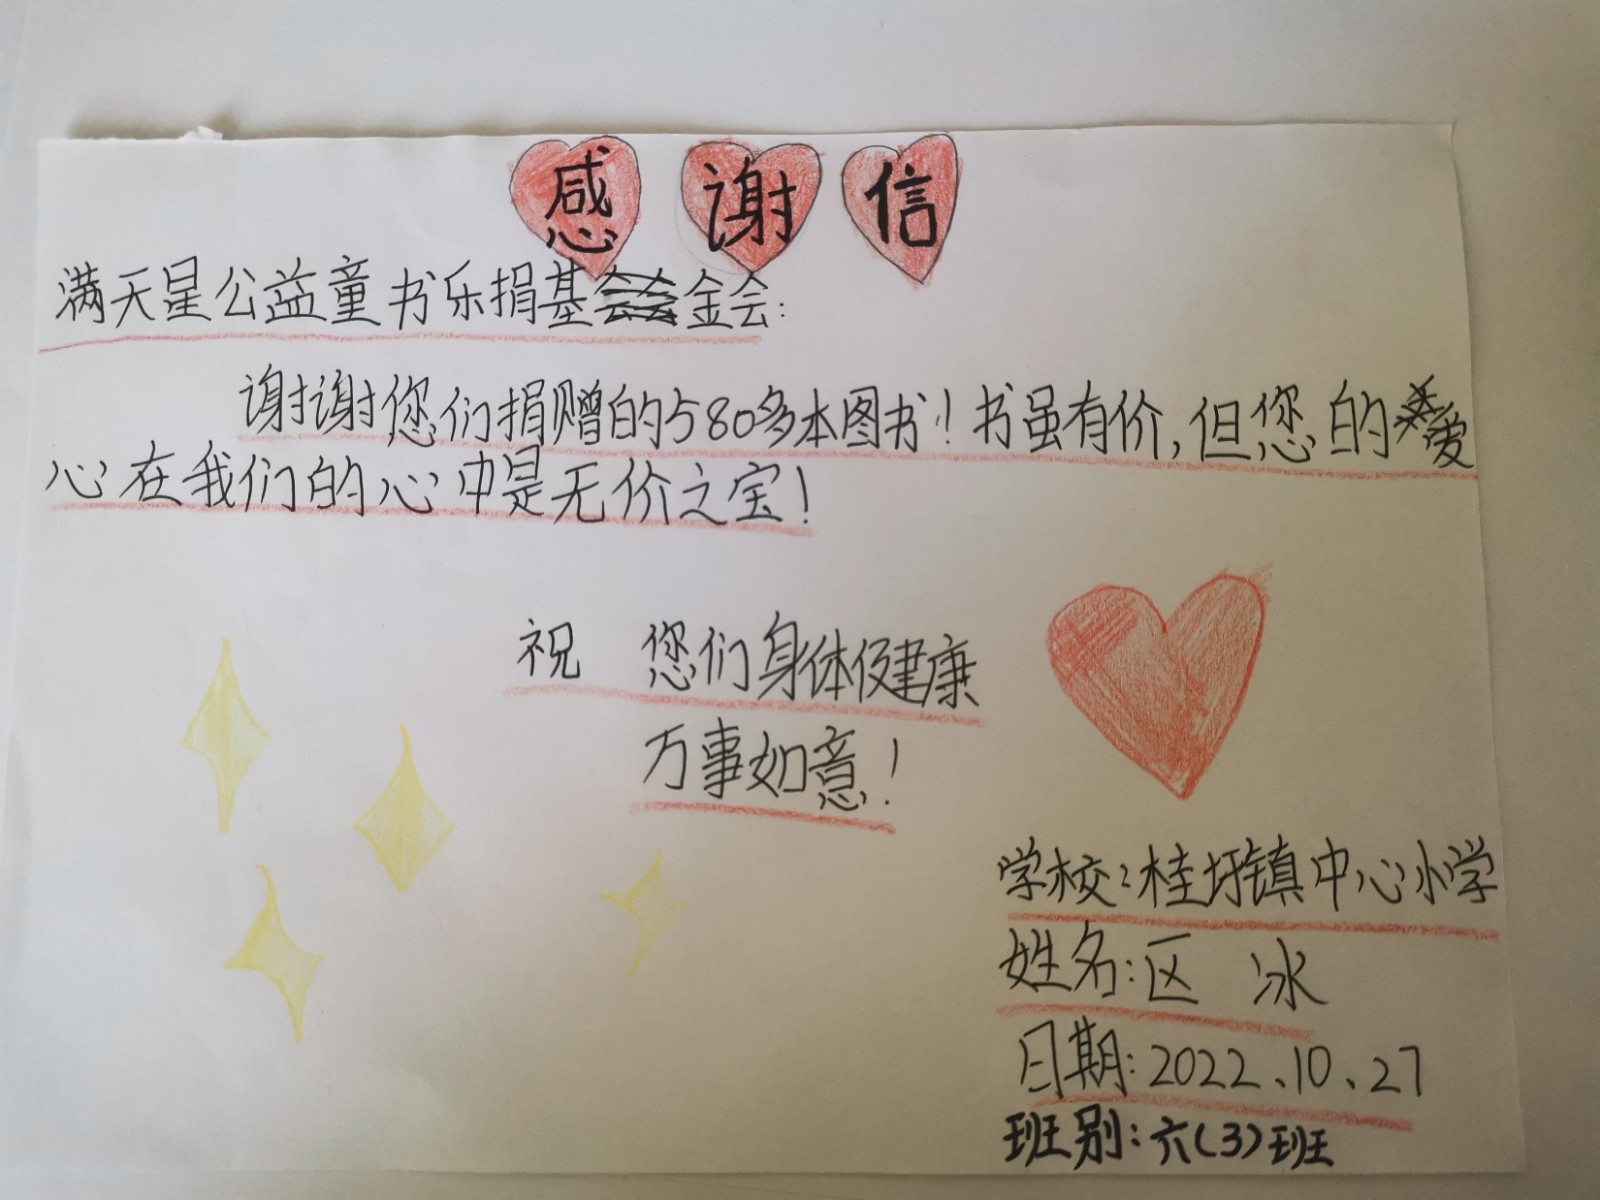 感谢信
满天星公益童书乐捐基金会:
谢谢您们捐赠的580多本图书!书虽有价,但您的爱
心在我们的心中是无价之宝!
祝 您们身体健康
万事如意!
学校:桂圩镇中心小学
姓名:区 冰
日期:2022、10、27
班别:六(3)班